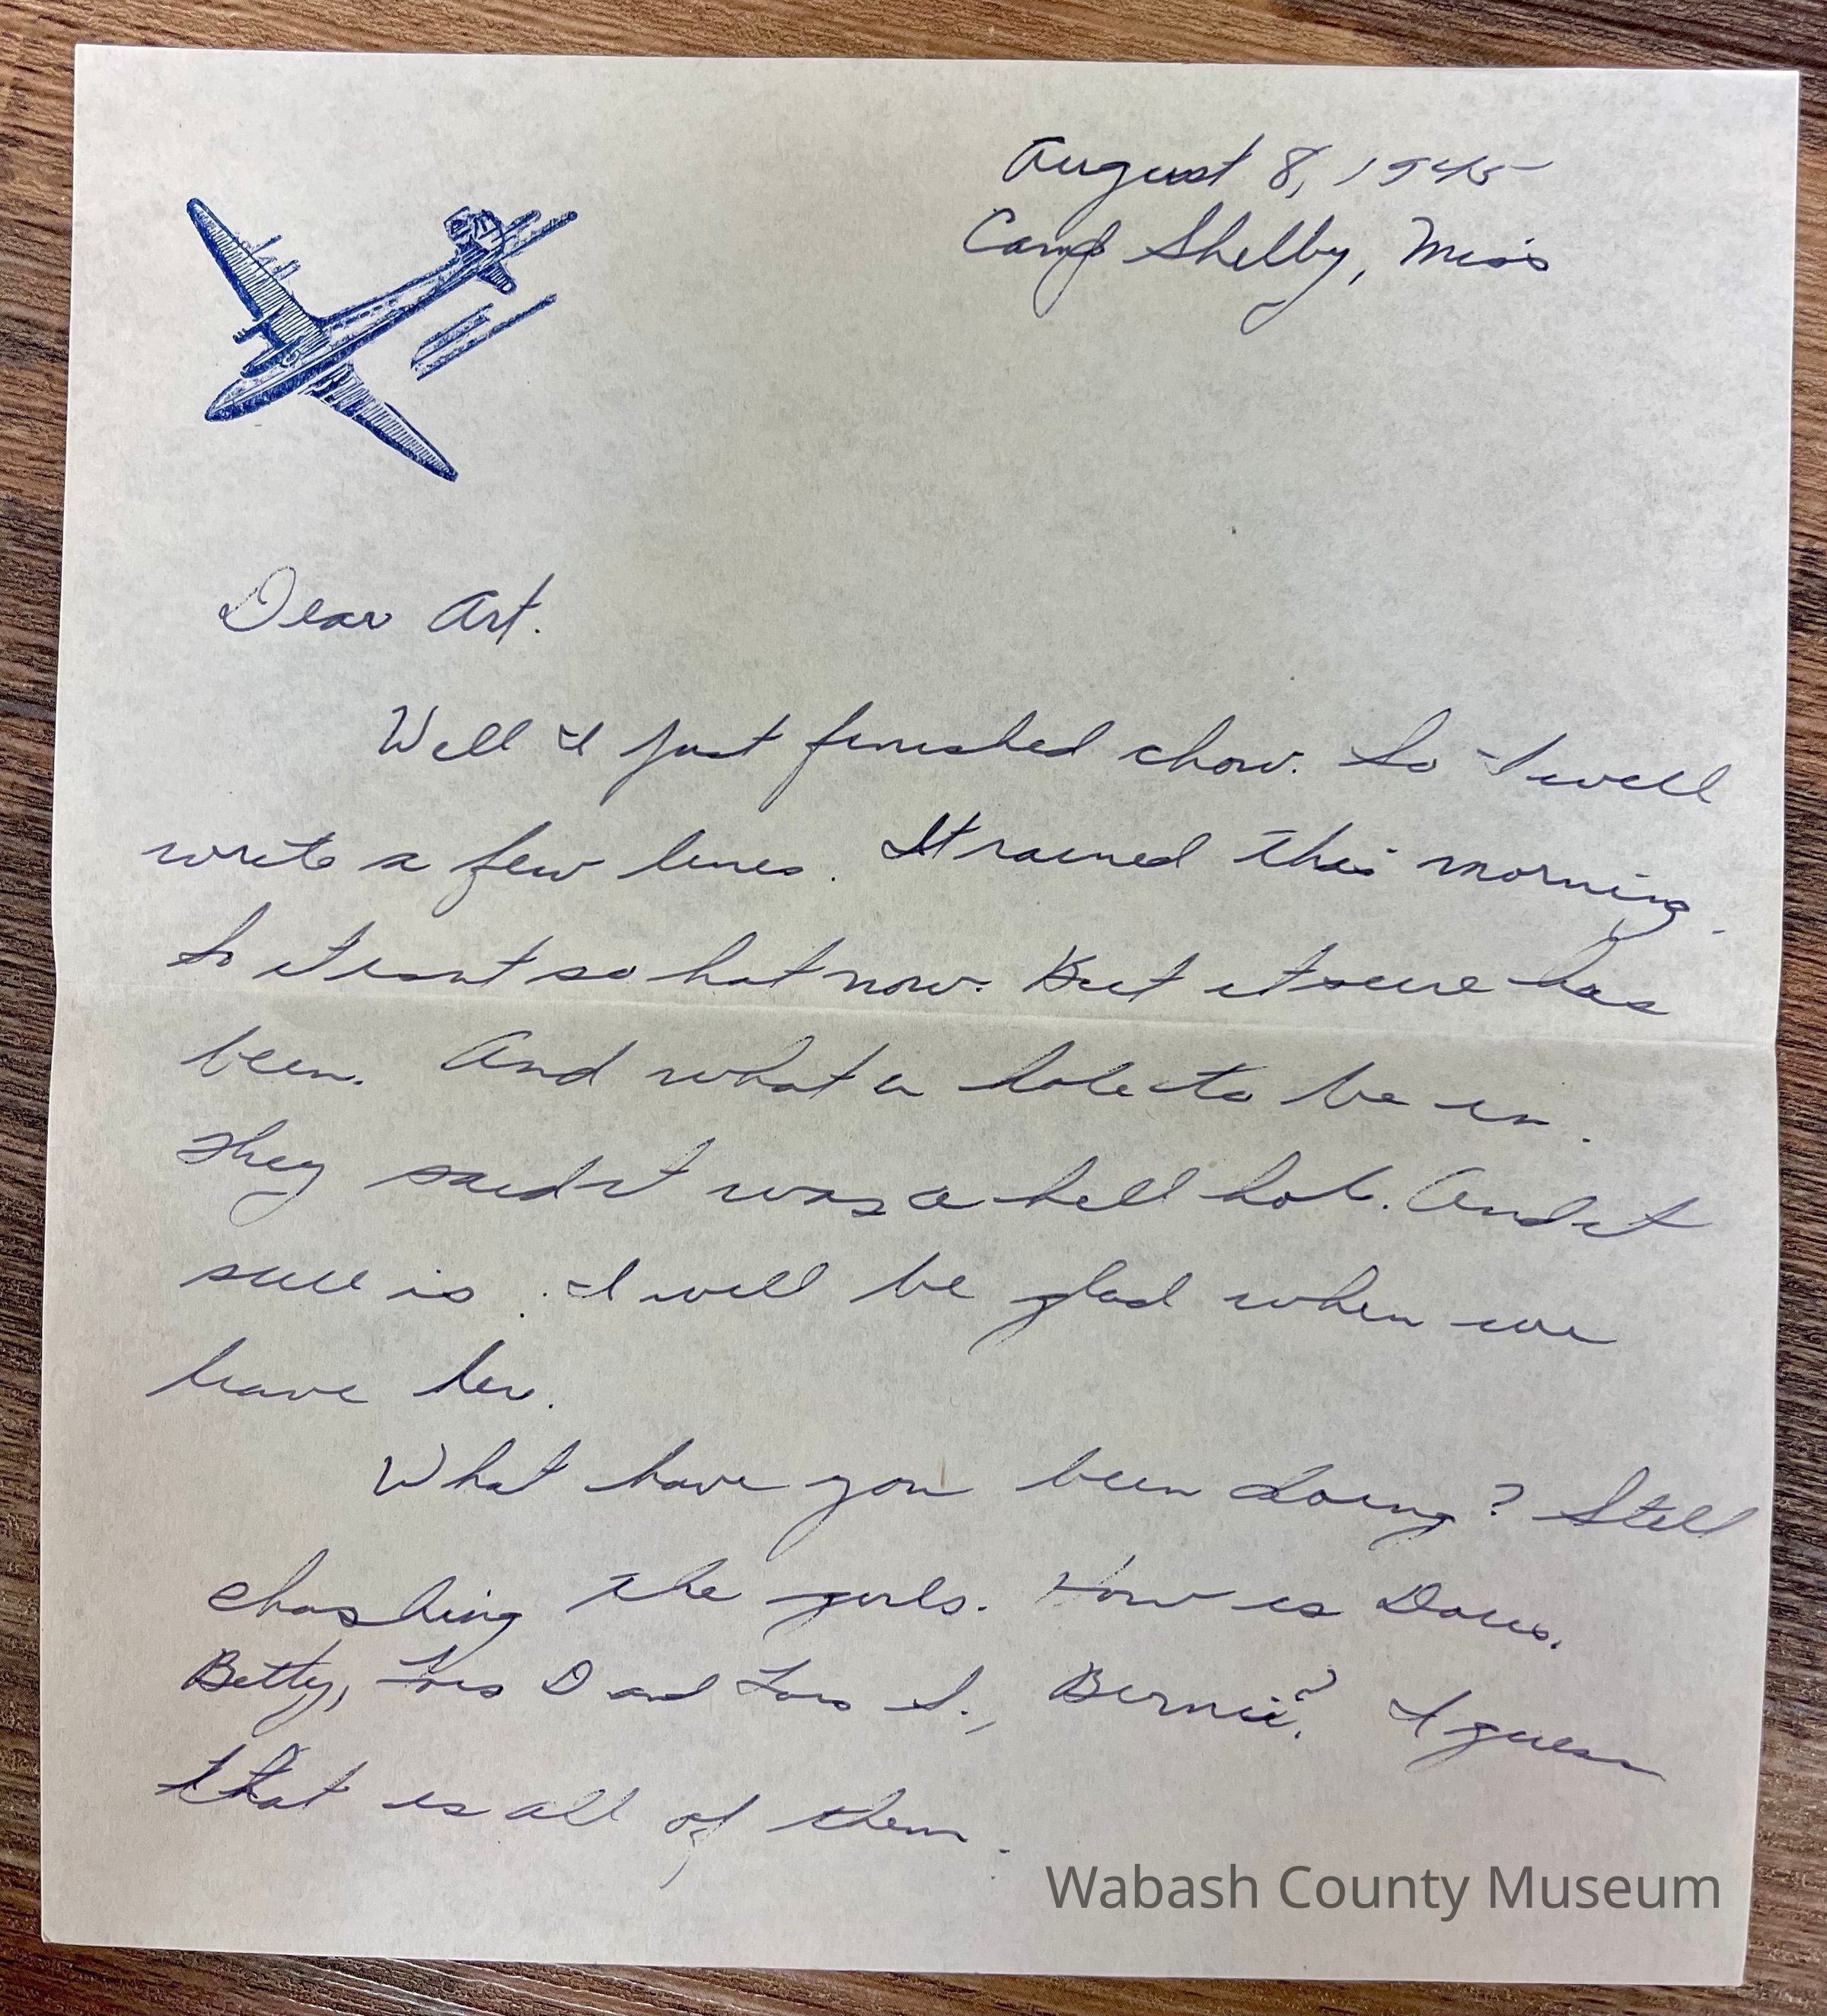 August 8, 1945
Camp Shelby, Miss
Dear Art.
Well I just finished chow. So I will
write a few lines. It rained this morning.
So it isnt so hot now. But it sure has
been. And what a hole to be in.
They said it was a hell hole. And it
sure is. I will be glad when we
leave her.
What have you been doing? Still
chashing the girls. How is Doris,
Betty, Lois D and Lois S., Bernie? I guess
that is all of them.
Wabash County Museum